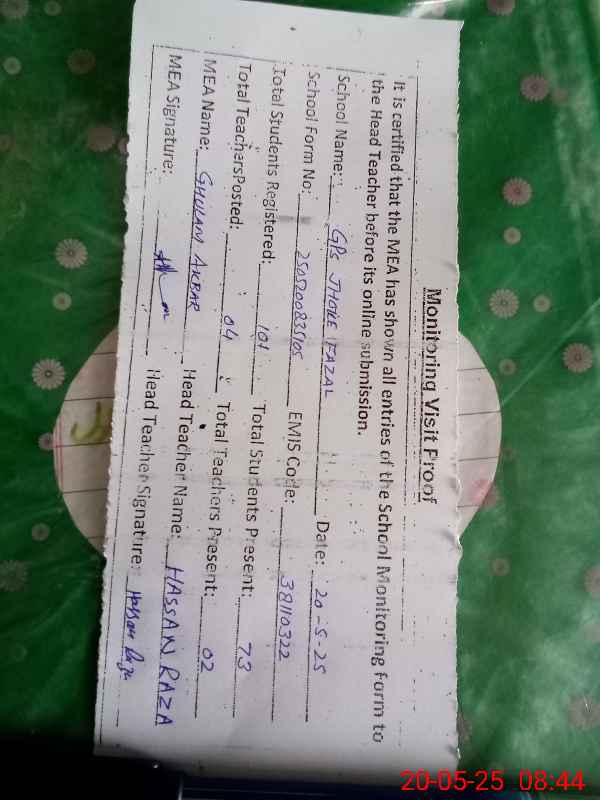 Monitoring Visit Proof
It is certified that the MEA has shown all entries of the School Monitoring form to
the Head Teacher before its online submission.
School Name: GPS JHOKE FAZAL Date: 20-5-25
School Form No: 2505200835105 EMIS Code: 38110322
Total Students Registered: 101 Total Students Present: 73
Total TeachersPosted: 04 Total Teachers Present: 02
MEA Name: GHULAM AKBAR Head Teacher Name: HASSAN RAZA
MEA Signature: Head Teacher Signature: Hassan Raza
20-05-25 08:44